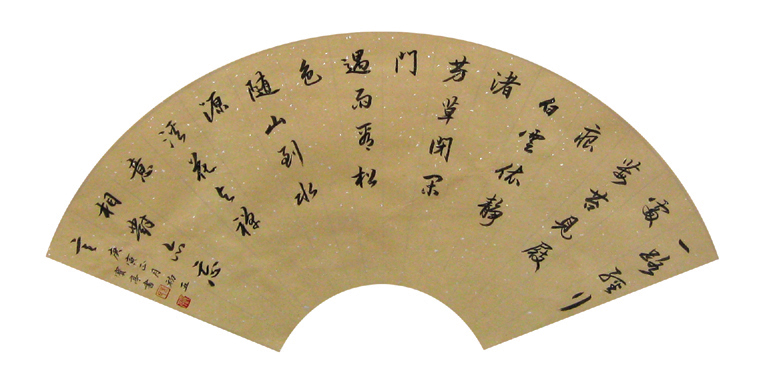 一路經行
處
莓苔見履
痕
白雲依靜
渚
芳草閉閑
門
遇雨看松
色
随山到水
源
溪花与禪
意
相對亦忘
言
庚寅正月初五
書